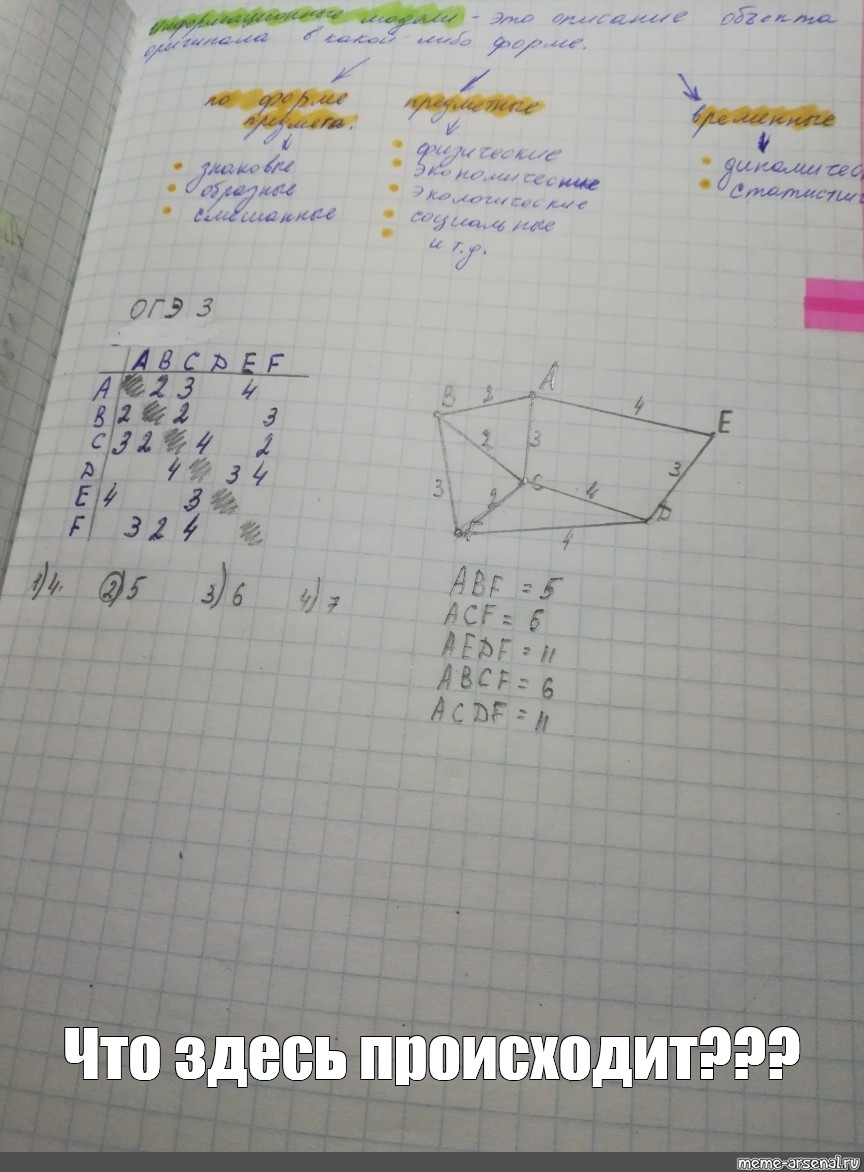 информационные модели - это описание объекта
оригинала в какой-либо форме.
по форме предмета.
знаковые
образные
смешанные
предметные
физические
экономические
экологические
социальные
и т.д.
временные
динамичес
статистич
ОГЭ 3
A B C D E F
A 2 3 4
B 2 2 3
C 3 2 4 2
D 4 3 4
E 4 3
F 3 2 4
B 2 A 4 E
2 3
3 C 4 3
2 D
F 4
1) 4. 2) 5 3) 6 4) 7
ABF = 5
ACF = 5
AEDF = 11
ABCF = 6
ACDF = 11
Что здесь происходит???
meme-arsenal.ru